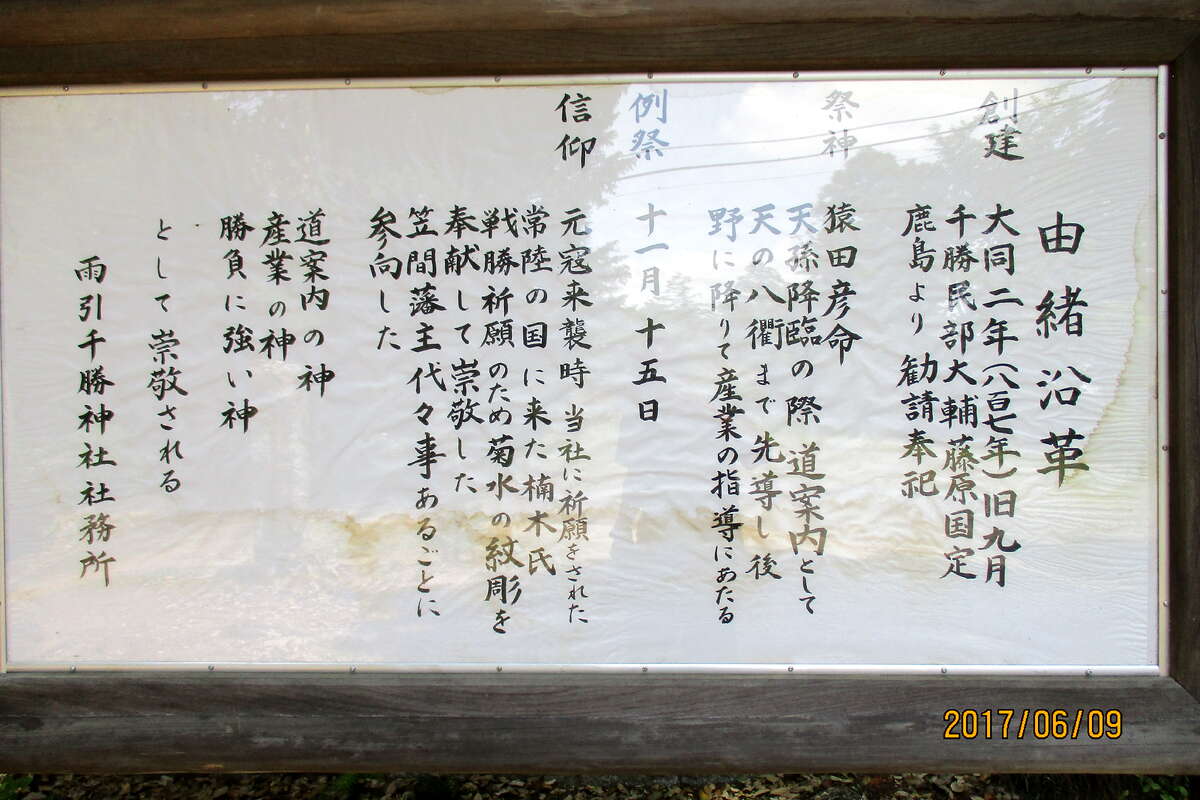 由緒沿革
創建 大同二年(八百七年)旧九月
千勝民部大輔藤原国定
鹿島より勧請奉祀
祭神 猿田彦命
天孫降臨の際 道案内として
天の八衢まで先導し後
野に降りて産業の指導にあたる
例祭 十一月十五日
信仰 元寇来襲時 当社に祈願をされた
常陸の国に来た楠木氏
戦勝祈願のため菊水の紋彫を
奉献して崇敬した
笠間藩主代々事あるごとに
参向した
道案内の神
産業の神
勝負に強い神
として崇敬される
雨引千勝神社社務所
2017/06/09